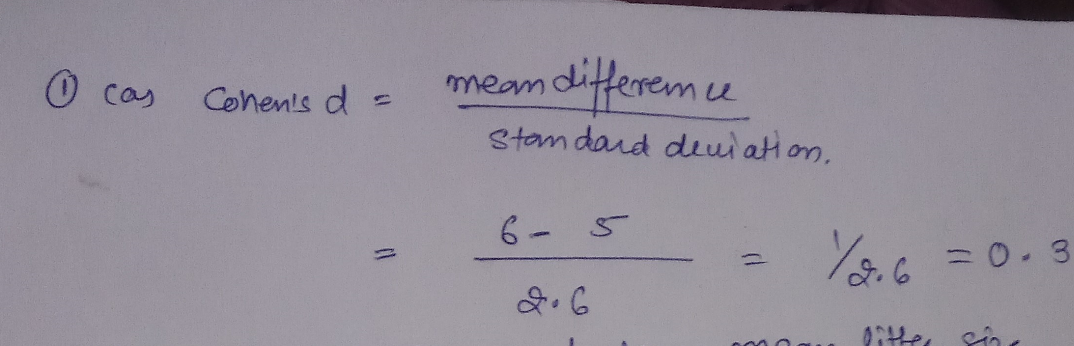 ① (a) Cohen's d = mean difference
standard deviation.
= 6 - 5 = 1/2.6 = 0.3
2.6